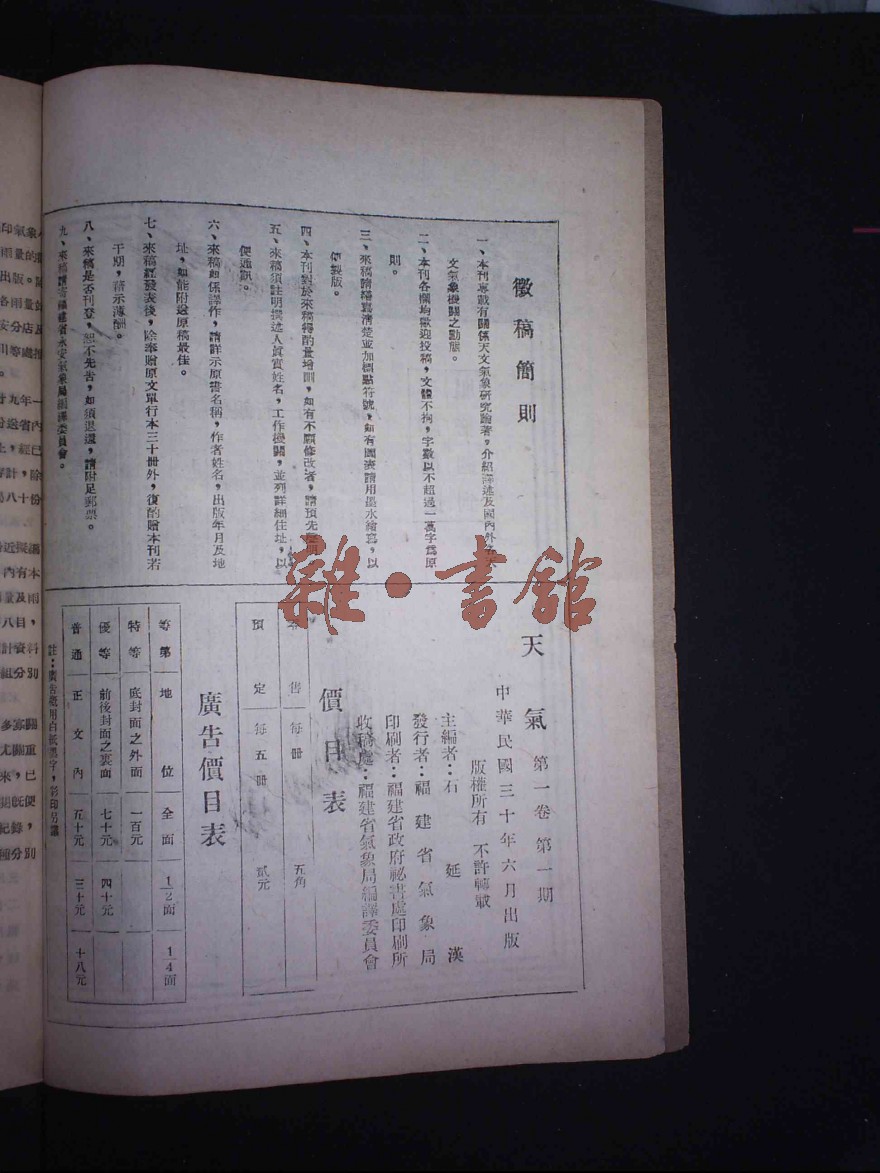 徵稿簡則
一、本刊專載有關係天文氣象研究論著，介紹譯述及國內外
文氣象機關之動態。
二、本刊各欄均歡迎投稿，文體不拘，字數以不超過一萬字爲原
則。
三、來稿請繕寫清楚並加標點符號，如有圖表請用墨水繪寫，以
便製版。
四、本刊對於來稿得酌量增删，如有不願修改者，請預先
五、來稿須註明撰述人眞實姓名，工作機關，並列詳細住址，以
便通訊。
六、來稿如係譯作，請詳示原書名稱，作者姓名，出版年月及地
址，如能附送原稿最佳。
七、來稿經發表後，除奉贈原文單行本三十冊外，復酌贈本刊若
干期，藉示薄酬。
八、來稿是否刊登，恕不先告，如須退還，請附足郵票。
九、來稿請寄福建省永安氣象局編譯委員會。
天氣 第一卷第一期
中華民國三十年六月出版
版權所有 不許轉載
主編者：石延漢
發行者：福建省氣象局
印刷者：福建省政府祕書處印刷所
收稿處：福建省氣象局編譯委員會
價目表
售 每冊 五角
預定 每五冊 貳元
廣告價目表
等第 地位 全面 1/2面 1/4面
特等 底封面之外面 一百元
優等 前後封面之裏面 七十元 四十元
普通 正文內 五十元 三十元 十八元
註：廣告概用白紙黑字，彩印另議
雜·書館